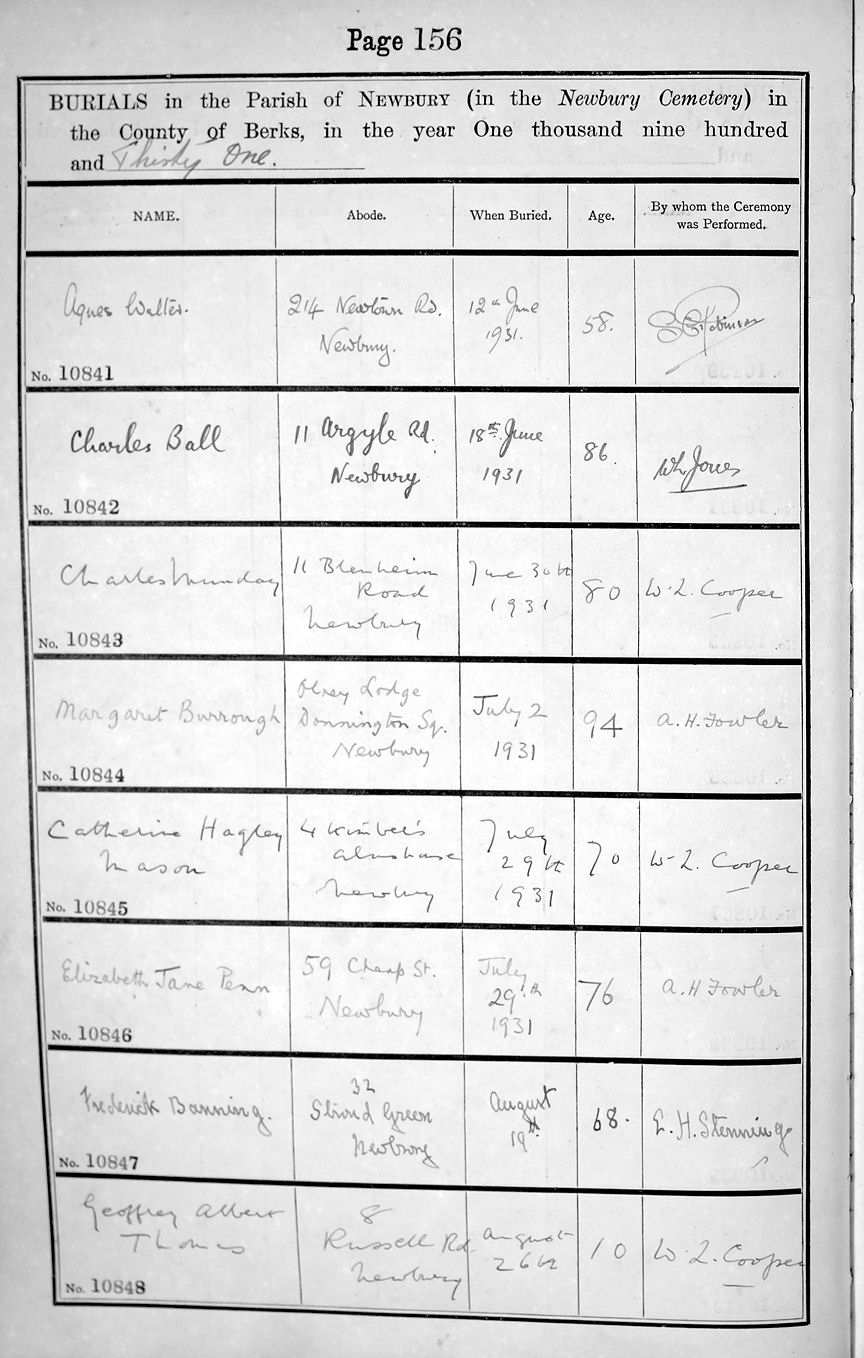 Page 156
BURIALS in the Parish of NEWBURY (in the Newbury Cemetery) in
the County of Berks, in the year One thousand nine hundred
and Thirty One.
NAME.
Abode.
When Buried.
Age.
By whom the Ceremony
was Performed.
Agnes Walter.
214 Newtown Rd.
Newbury.
12th June
1931.
58.
Robinson
No. 10841
Charles Ball
11 Argyle Rd.
Newbury
18th June
1931
86.
Jones
No. 10842
Charles Munday
11 Blenheim
Road
Newbury
June 30th
1931
80
W. L. Cooper
No. 10843
Margaret Burrough
Lodge
Donnington Sq.
Newbury
July 2
1931
94
A. H. Fowler
No. 10844
Catherine Hagley
Mason
4 Kimber's
Almshouse
Newbury
July
29th
1931
70
W. L. Cooper
No. 10845
Elizabeth Jane Penn
59 Cheap St.
Newbury
July
29th
1931
76
A. H Fowler
No. 10846
Frederick Banning.
32
Stroud Green
Newbury
August
19th
68.
E. H. Stenning
No. 10847
Geoffrey Albert
Thomas
8
Russell Rd.
Newbury
August
26th
10
W. L. Cooper
No. 10848